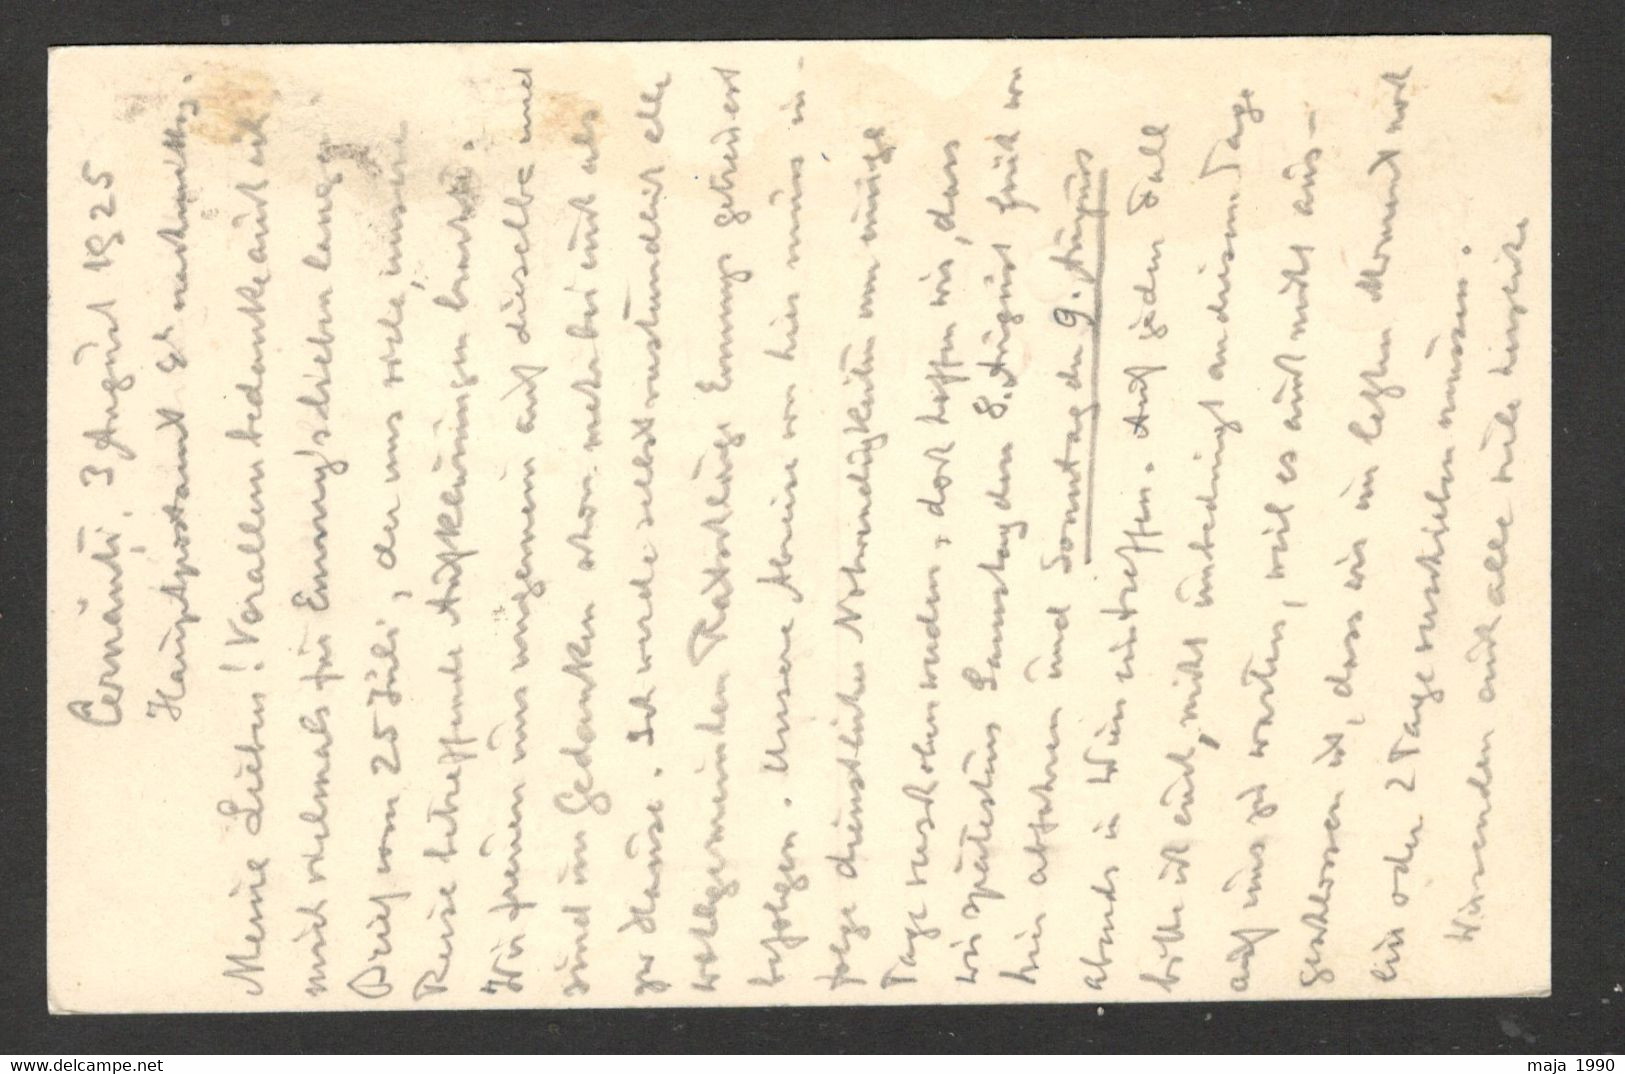 Cernăuți, 3 August 1925
Hauptpostamt 9h nachmittags.
Meine Lieben! Vor allem bedanke auch ich
mich vielmals für Emmy's lieben langen
Brief vom 25 Juli, der uns viele, unsere
Reise betreffende Aufklärungen brachte.
Wir freuen uns ungemein auf dieselbe und
sind in Gedanken schon mehr bei euch als
zu Hause. Ich werde selbstverständlich alle
wohlgemeinten Ratschläge Emmys getreulichst
befolgen. Unsere Abreise von hier muss in-
folge dienstlicher Notwendigkeiten um einige
Tage verschoben werden, doch hoffen wir, dass
wir spätestens Samstag den 8. August früh von
hier abfahren und Sonntag den 9. August
abends in Wien eintreffen. Auf jeden Fall
bitte ich euch, nicht unbedingt an diesem Tage
auf uns zu warten, weil es auch nicht aus-
geschlossen ist, dass wir im letzten Moment noch
ein oder 2 Tage verschieben müssen.
Wir senden euch alle viele herzliche
maja 1990